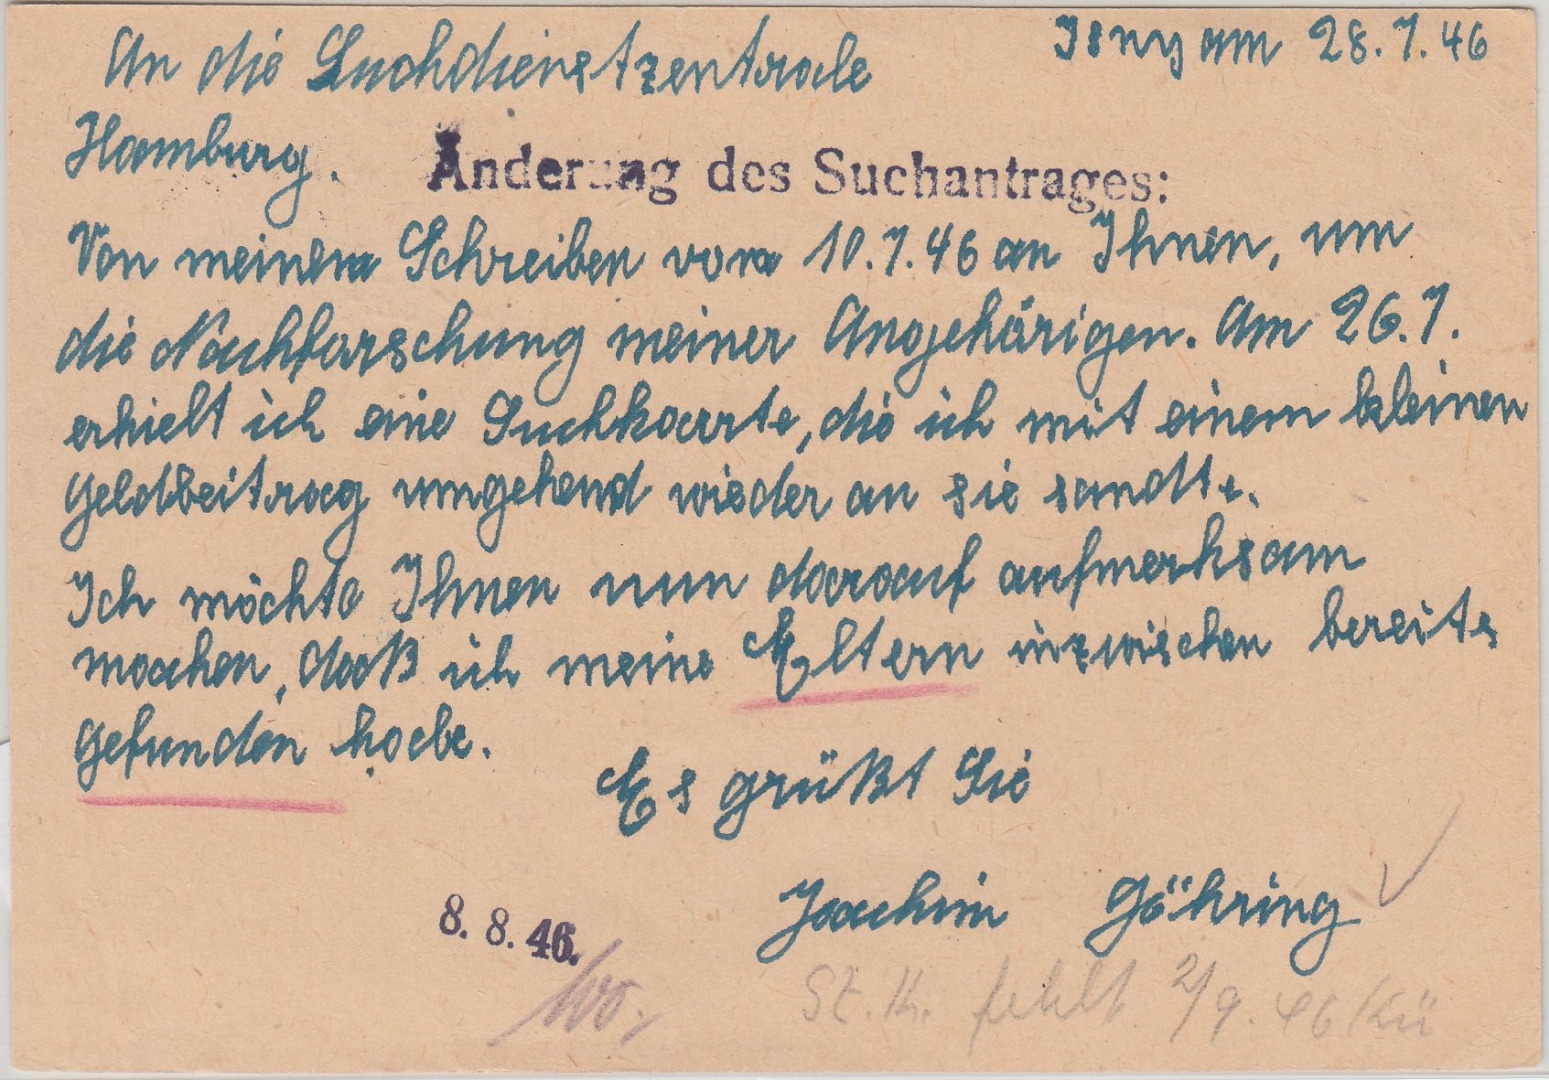 Isny am 28.7.46
An die Suchdienstzentrale
Hamburg.
Änderung des Suchantrages:
Von meinem Schreiben vom 10.7.46 an Ihnen, um
die Nachforschung meiner Angehörigen. Am 26.7.
erhielt ich eine Suchkarte, die ich mit einem kleinen
Geldbeitrag umgehend wieder an sie sandte.
Ich möchte Ihnen nun darauf aufmerksam
machen, daß ich meine Eltern inzwischen bereits
gefunden habe.
Es grüßt Sie
Joachim Göhring
8. 8. 46.
St. K. fehlt 2/9. 46 Kü